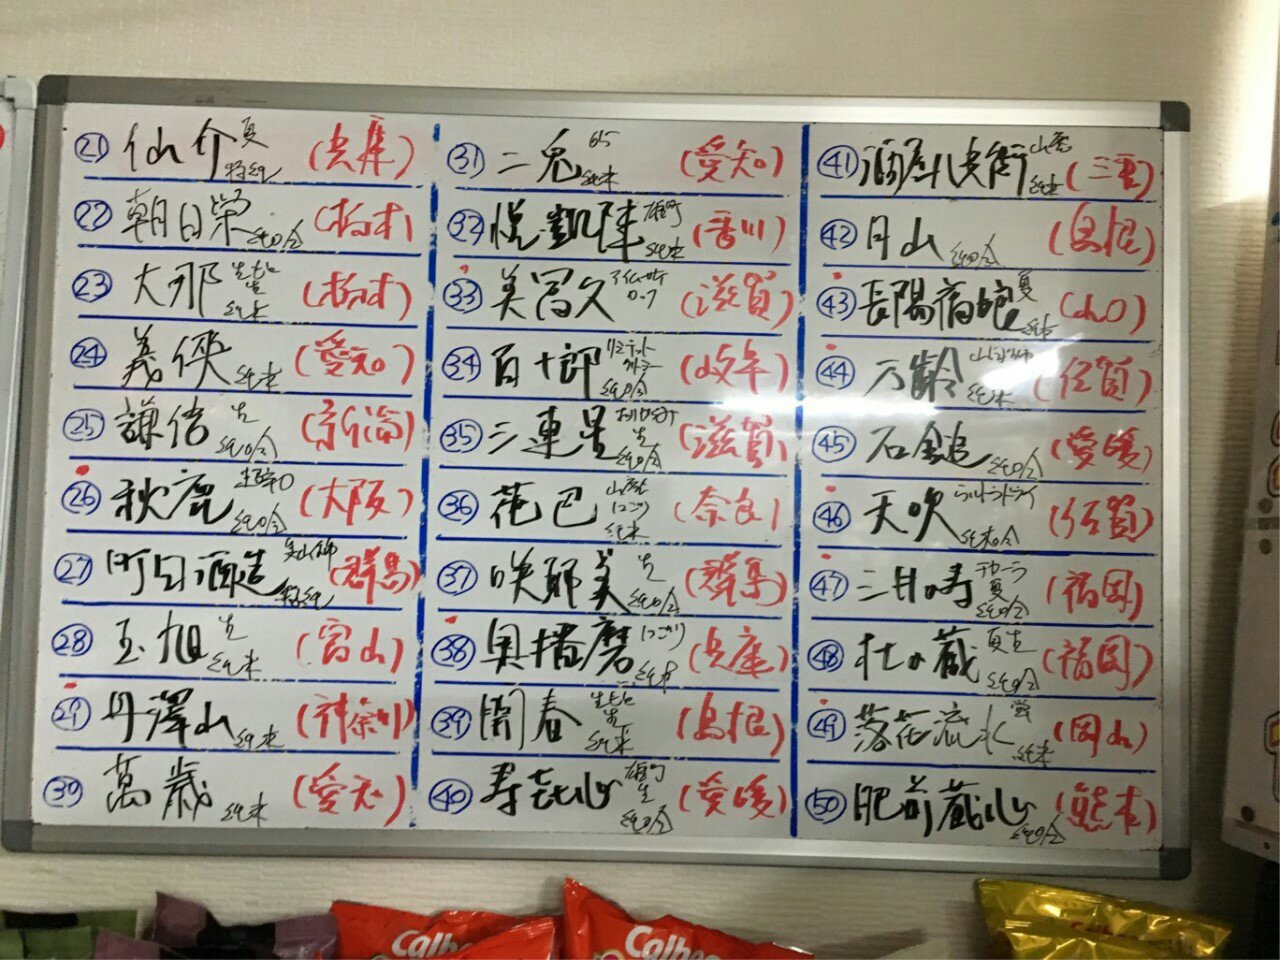 ㉑ 仙介 夏 特純 (兵庫)
㉒ 朝日栄 純吟 (栃木)
㉓ 大那 生酛 純米 (栃木)
㉔ 義侠 純米 (愛知)
㉕ 謙信 生 純吟 (新潟)
㉖ 秋鹿 純吟 (大阪)
㉗ 町田酒造 美山錦 特純 (群馬)
㉘ 玉旭 生 純米 (富山)
㉙ 丹澤山 純米 (神奈川)
㉚ 萬歳 純米 (愛知)
㉛ 二兎 65 純米 (愛知)
㉜ 悦凱陣 雄町 純米 (香川)
㉝ 美冨久 0.7 (滋賀)
㉞ 百十郎 純吟 (岐阜)
㉟ 三連星 生 純吟 (滋賀)
㊱ 花巴 山廃 にごり 純米 (奈良)
㊲ 咲耶美 生 純吟 (群馬)
㊳ 奥播磨 にごり 純米 (兵庫)
㊴ 開春 生酛 純米 (島根)
㊵ 寿喜心 雄町 生 純吟 (愛媛)
㊶ 酒屋八兵衛 山廃 純米 (三重)
㊷ 月山 純吟 (島根)
㊸ 長陽福娘 夏 純米 (山口)
㊹ 万齢 純米 (佐賀)
㊺ 石鎚 純吟 (愛媛)
㊻ 天吹 純米吟 (佐賀)
㊼ 三井の寿 夏 純吟 (福岡)
㊽ 杜の蔵 夏生 純吟 (福岡)
㊾ 落花流水 蛍 純米 (岡山)
㊿ 肥前蔵心 純吟 (熊本)
Calbee
Calbee